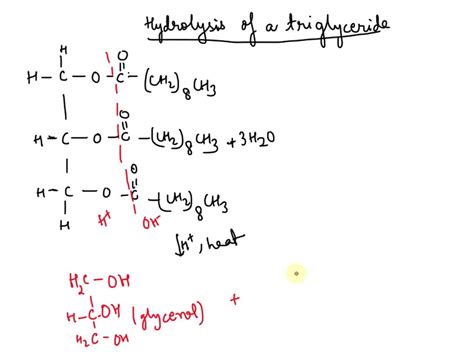 Hydrolysis of a triglyceride
H
O
H - C - O - C - (CH2)8CH3
O
H - C - O - C - (CH2)8CH3 + 3H2O
O
H - C - O - C - (CH2)8CH3
H H+ OH
↓H+, heat
H2C - OH
H - C - OH (glycerol) +
H2C - OH